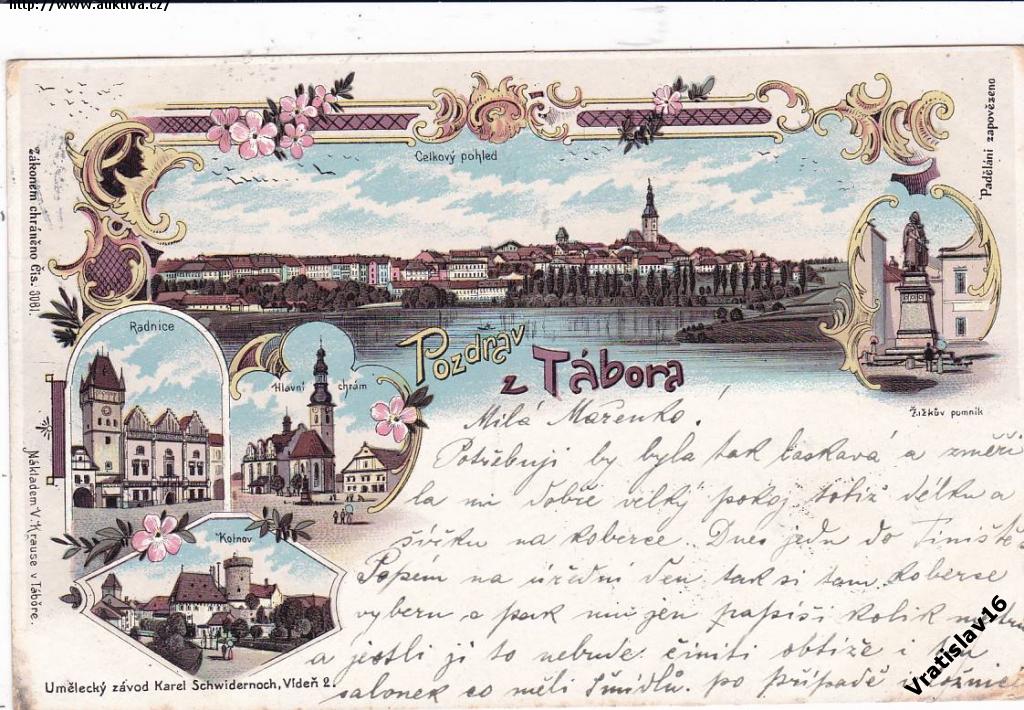 http://www.auktiva.cz/
Celkový pohled
Padělání zapovězeno
Zákonem chráněno Čís. 3081.
Radnice
Hlavní chrám
Pozdrav
z Tábora
Žižkův pomník
Milá Mařenko!
Potřebuji by byla tak laskavá a změři
la mi dobře velký pokoj totiž délku a
šířku na koberce. Dnes jedu do Tiniště
na úřední den tak si tam koberce
vyberu a pak mi jen napíši kolik
a jestli jí to nebude činiti obtíže i ten
salonek co měli Šmídlů. po případě i
Kotnov
Nákladem V. Krause v Táboře.
Umělecký závod Karel Schwidernoch, Vídeň 2.
Vratislav16